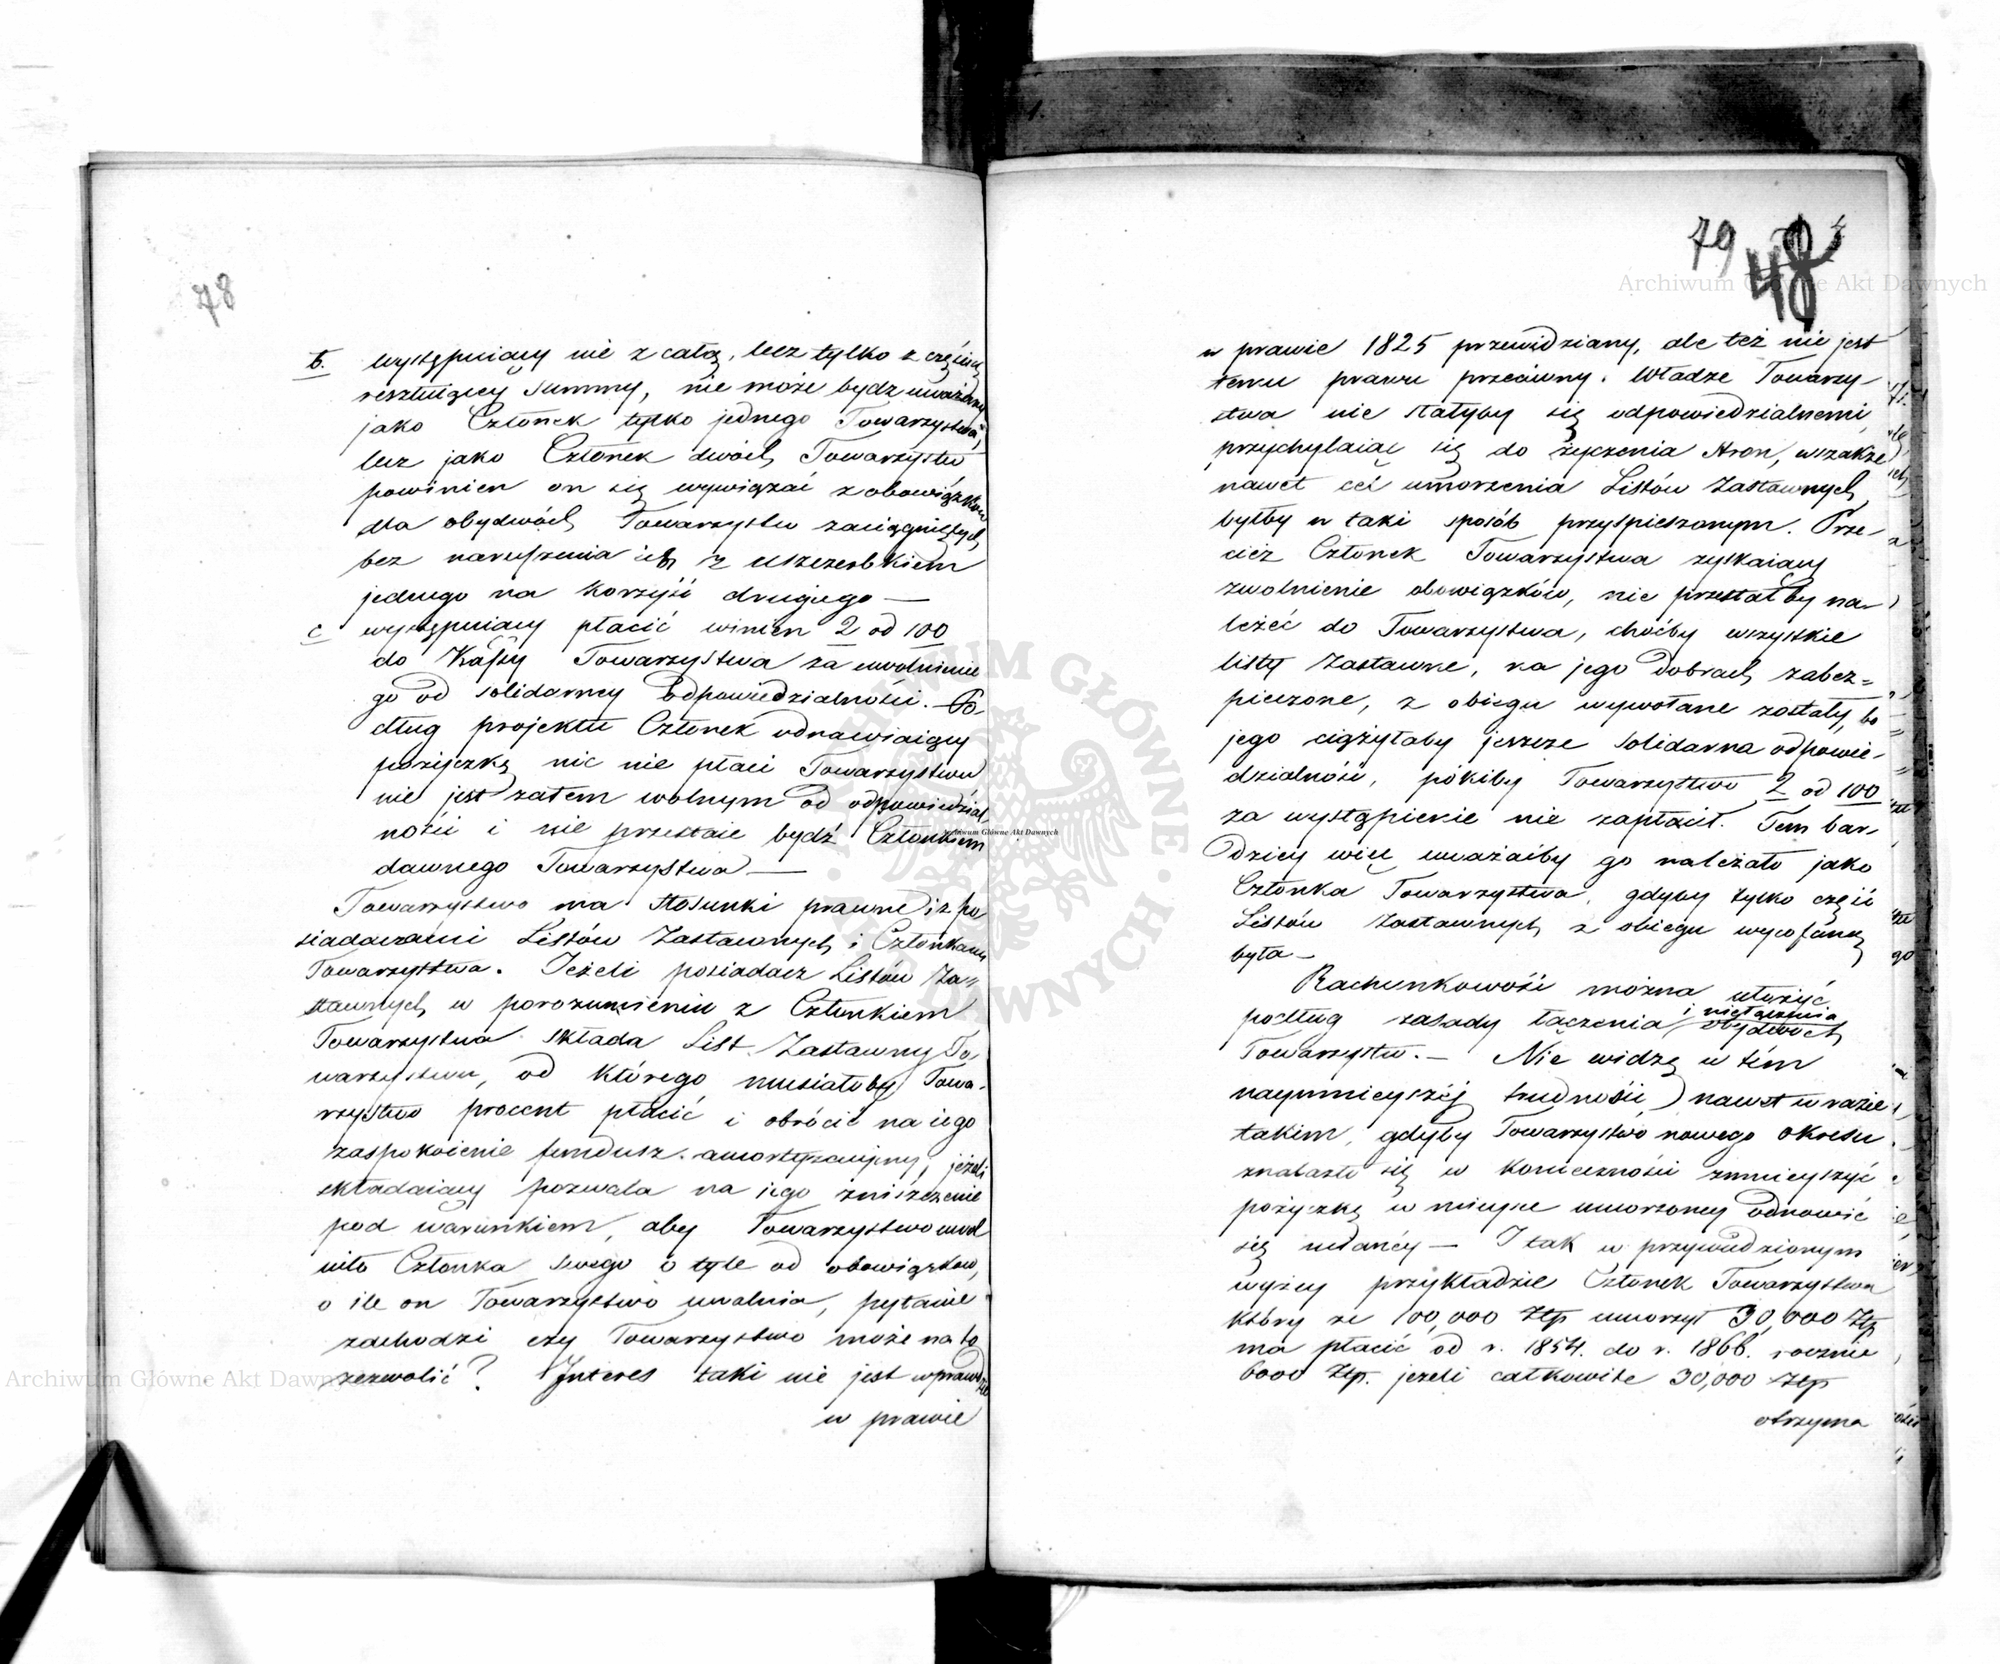 78
b. występuiący nie z całą, lecz tylko z częścią
resztuiącey Summy, nie może bydź uważany
jako Członek tylko jednego Towarzystwa,
lecz jako Członek dwóch Towarzystw
powinien on się wywiązać z obowiązków
dla obydwóch Towarzystw zaciągniętych
bez naruszenia ich z uszczerbkiem
jednego na korzyść drugiego —
c występuiący płacić winien 2 od 100
do Kassy Towarzystwa za uwolnienie
go od solidarney odpowiedzialności. — Po-
dług projektu Członek odnawiaiący
pożyczkę nic nie płaci Towarzystwu
nie jest zatem wolnym od odpowiedzial-
ności i nie przestaie bydź Członkiem
dawnego Towarzystwa —
Towarzystwo ma stosunki prawne i z po
siadaczami Listów Zastawnych i Członkami
Towarzystwa. Jeżeli posiadacz Listów Za-
stawnych w porozumieniu z Członkiem
Towarzystwa składa List Zastawny To-
warzystwu, od którego musiałoby Towa-
rzystwo procent płacić i obrócić na iego
zaspokoienie fundusz amortyzacyjny, jeżeli
składaiący pozwala na iego zniszczenie
pod warunkiem, aby Towarzystwo uwol
niło Członka swego o tyle od obowiązków,
o ile on Towarzystwo uwalnia, pytanie
zachodzi czy Towarzystwo może na to
zezwolić? Interes taki nie jest wprawdzie
w prawie
79
48
w prawie 1825 przewidziany, ale też nie jest
temu prawu przeciwny. Władze Towarzy-
stwa nie stałyby się odpowiedzialnemi,
przychylaiąc się do życzenia stron, wszakże
nawet cel umorzenia Listów Zastawnych
byłby w taki sposób przyspieszonym. Prze-
cież Członek Towarzystwa zyskaiący
zwolnienie obowiązków, nie przestałby na-
leżeć do Towarzystwa, choćby wszystkie
listy Zastawne, na jego dobrach zabez-
pieczone, z obiegu wywołane zostały, bo
jego ciążyłaby jeszcze solidarna odpowie-
dzialność, pókiby Towarzystwu 2 od 100
za wystąpienie nie zapłacił. Tem bar-
dziey więc uważaiby go należało jako
Członka Towarzystwa, gdyby tylko część
Listów Zastawnych z obiegu wycofaną
była —
Rachunkowość można ułożyć
podług zasady łączenia i niełączenia obydwóch
Towarzystw. — Nie widzę w tém
naymnieyszéj trudności, nawet w razie
takim, gdyby Towarzystwo nowego okresu
znalazło się w konieczności zmnieyszyć
pożyczkę w mieysce umorzoney odnowić
się maiącéy — I tak w przywiedzionym
wyżey przykładzie Członek Towarzystwa
który ze 100,000 Złp umorzył 30,000 Złp
ma płacić od r. 1854. do r. 1866. rocznie
6000 Złp. jeżeli całkowite 30,000 Złp
otrzyma
Archiwum Główne Akt Dawnych
Archiwum Główne Akt Dawnych
Archiwum Główne Akt Dawnych
ARCHIWUM GŁÓWNE AKT DAWNYCH